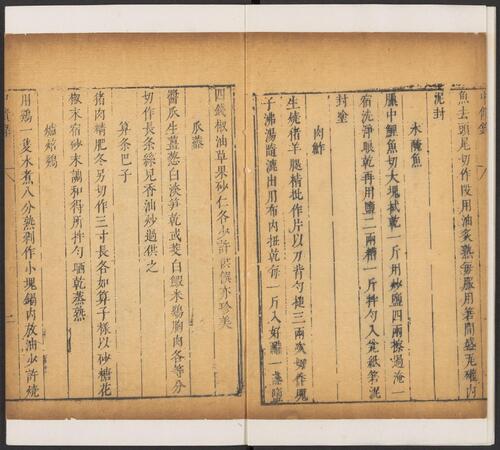 魚去頭尾切作段用油炙熟每服用箬間盛瓦罐內
泥封
水醃魚
臘中鯉魚切大塊拭乾一斤用炒鹽四兩擦過淹一
宿洗淨晾乾再用鹽二兩糟一斤拌勻入瓮紙箬泥
封塗
肉鮓
生燒猪羊腿精批作片以刀背勻搥三兩次切作塊
子沸湯隨漉出用布內扭乾每一斤入好醋一盞鹽
四錢椒油草果砂仁各少許供饌亦珍美
瓜虀
醬瓜生薑葱白淡笋乾或茭白蝦米鷄胸肉各等分
切作長條絲兒香油炒過供之
算條巴子
猪肉精肥各另切作三寸長各如算子樣以砂糖花
椒末宿砂末調和得所拌勻晒乾蒸熟
爐焙鷄
用鷄一隻水煮八分熟剁作小塊鍋內放油少許燒